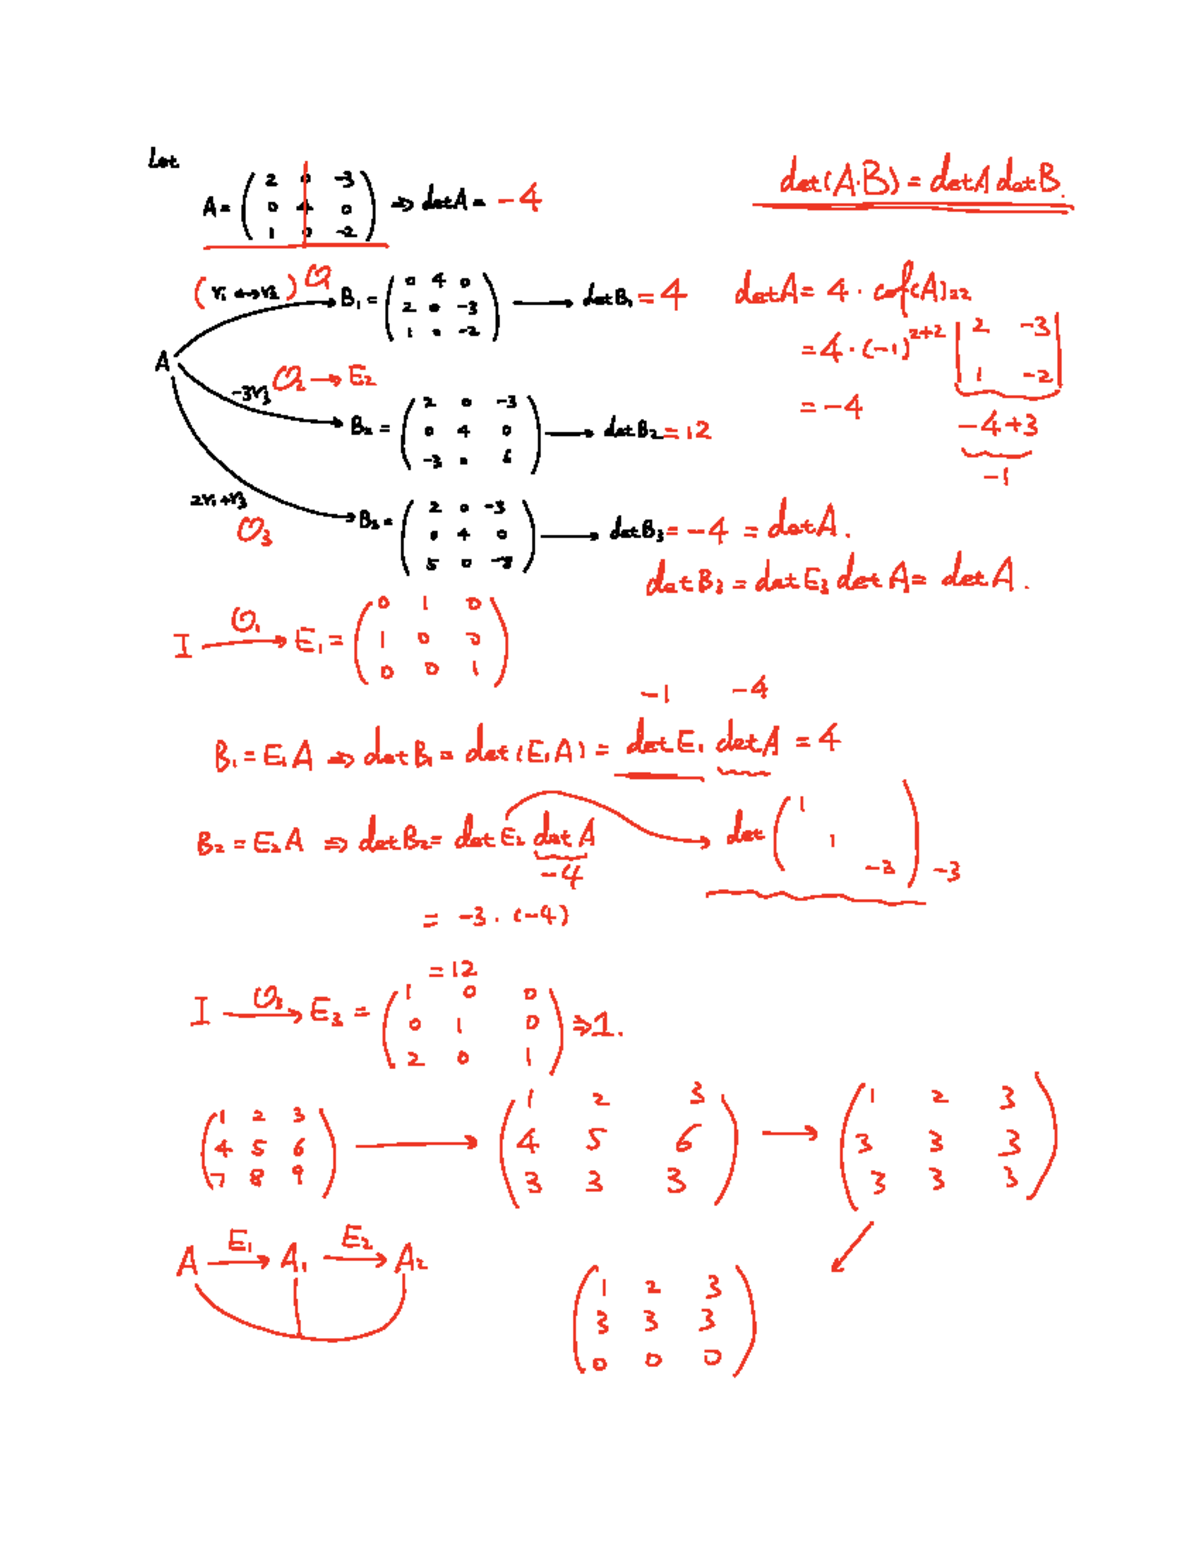 Let
A = ( 2 0 -3
0 4 0
1 0 -2 ) ⇒ detA = -4
det(A·B) = detA detB.
(r₁ ↔ r₂) O₁
B₁ = ( 0 4 0
2 0 -3
1 0 -2 ) → detB₁ = 4
detA = 4 · cof(A)₂₂
= 4 · (-1)²⁺² | 2 -3
1 -2 |
= -4
-4+3
-1
A
-3r₃ O₂ → E₂
B₂ = ( 2 0 -3
0 4 0
-3 0 6 ) → detB₂ = 12
2r₁+r₃
O₃
B₃ = ( 2 0 -3
0 4 0
5 0 -8 ) → detB₃ = -4 = detA.
detB₃ = detE₃ detA = detA.
I O₁ → E₁ = ( 0 1 0
1 0 0
0 0 1 )
-1 -4
B₁ = E₁A ⇒ detB₁ = det(E₁A) = detE₁ detA = 4
B₂ = E₂A ⇒ detB₂ = detE₂ detA → det ( 1
1
-3 ) -3
-4
= -3 · (-4)
= 12
I O₃ → E₃ = ( 1 0 0
0 1 0
2 0 1 ) ⇒ 1.
( 1 2 3
4 5 6
7 8 9 ) → ( 1 2 3
4 5 6
3 3 3 ) → ( 1 2 3
3 3 3
3 3 3 )
A E₁ → A₁ E₂ → A₂
( 1 2 3
3 3 3
0 0 0 )